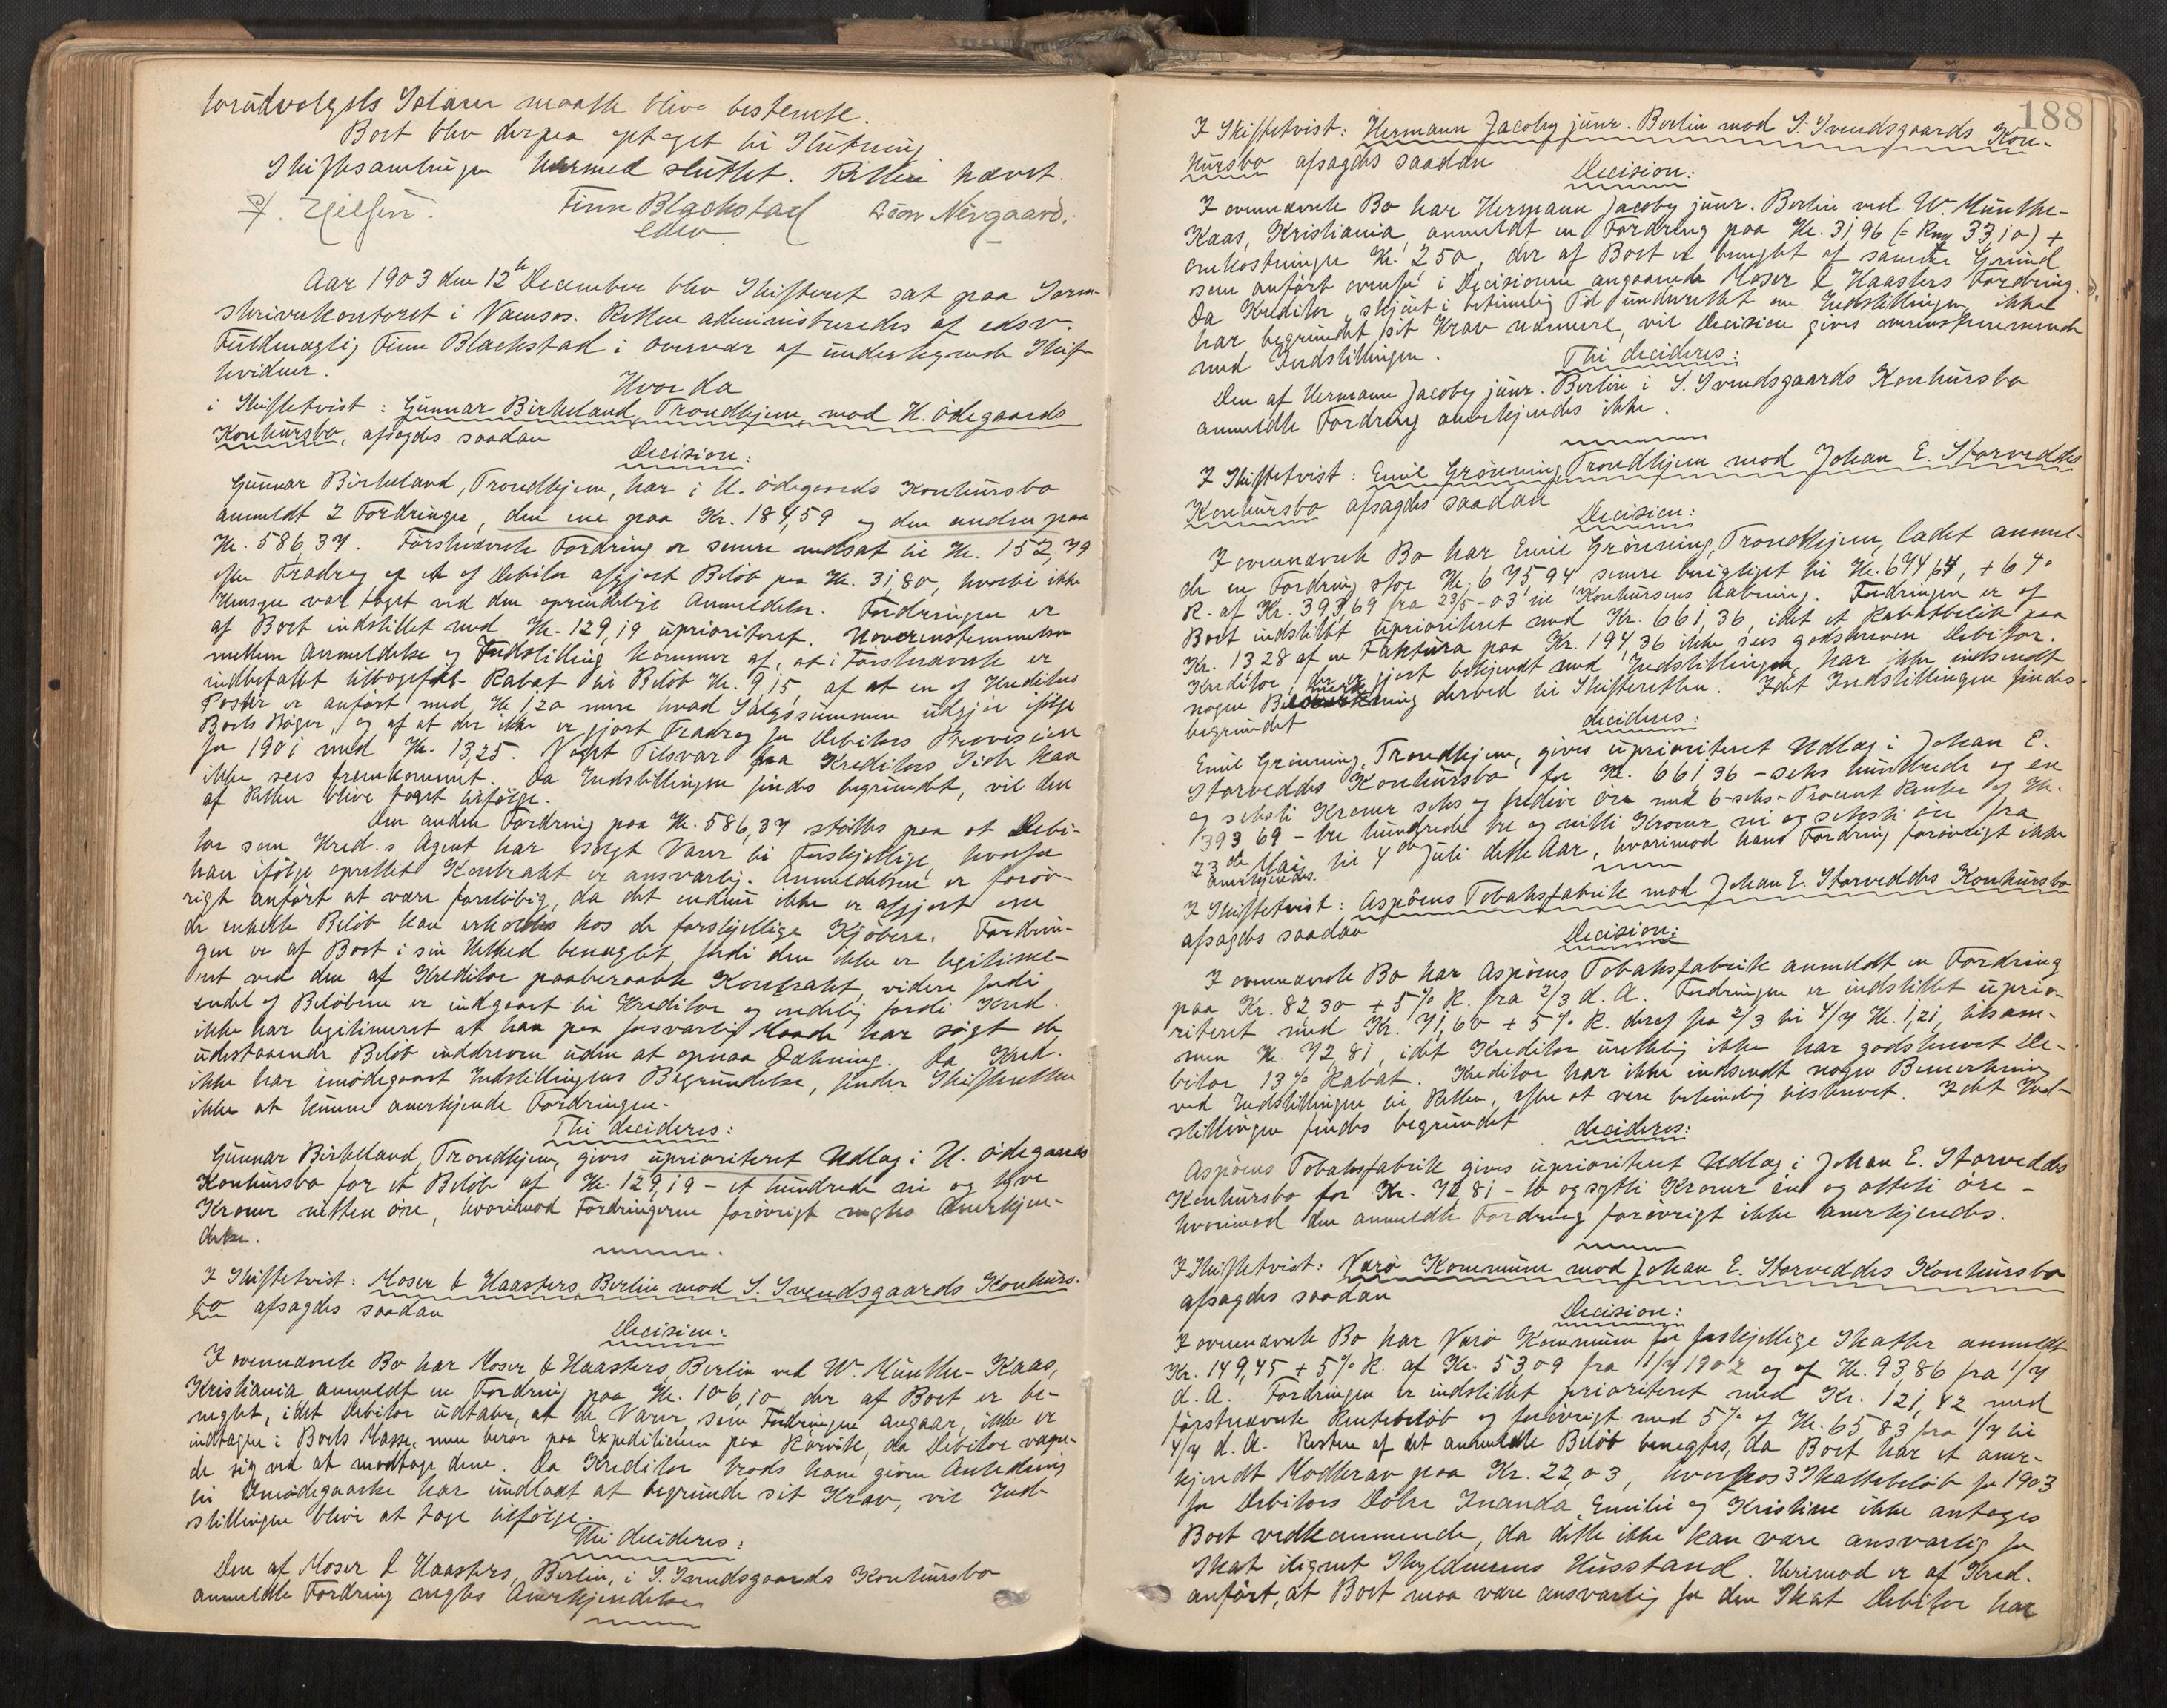 maatte blive bestemte.
Boet blev derpaa optaget til Slutning
Skiftesamlingen hermed sluttet. Retten hævet.
Finn Blackstad Nergaard.
edsv
Aar 1903 den 12te December blev Skifteret sat paa Soren-
skriverkontoret i Namsos. Retten administreredes af edsv.
Fuldmægtig Finn Blackstad i Overvær af undertegnede Skifte
vidner.
Hvor da
i Skiftetvist: Gunnar Birkeland, Trondhjem, mod H. Ödegaards
Konkursbo, afsagdes saadan
Decision:
Gunnar Birkeland, Trondhjem, har i H. Ödegaards Konkursbo
anmeldt 2 Fordringer, den ene paa Kr. 184,59 og den anden paa
Kr. 586,37. Förstnævnte Fordring er senere nedsat til Kr. 152,79
efter Fradrag af et af Debitor afgjort Belöb paa Kr. 31,80, hvortil ikke
Hensyn var taget ved den oprindelige Anmeldelse. Fordringen er
af Boet indstillet med Kr. 129,19 uprioriteret. Uoverensstemmelsen
mellem Anmeldelse og Indstilling kommer af, at i Förstnævnte er
indbefattet Rabat til Belöb Kr. 9,15, af at en af Kreditors
Poster er anfört med Kr. 1,20 mere hvad Salgssummen udgjör ifölge
Boets Böger, og af at der ikke er gjort Fradrag for Debitors Provision
for 1901 med Kr. 13,25. Noget Tilsvar fra Kreditors Side kan
ikke sees fremkommet. Da Indstillingen findes begrundet, vil den
af Retten blive taget tilfölge.
Den anden Fordring paa Kr. 586,37 stöttes paa at Debi-
tor som Kred.s Agent har solgt Varer til Forskjellige, hvorfor
han ifölge oprettet Kontrakt er ansvarlig. Anmeldelsen er foröv-
rigt anfört at være forelöbig, da det endnu ikke er afgjort om
de enkelte Belöb kan erholdes hos de forskjellige Kjöbere. Fordrin-
gen er af Boet i sin Helhed benægtet, fordi den ikke er legitime-
ret ved den af Kreditor paaberaabte Kontrakt, videre fordi
endel af Belöbene er indgaaet til Kreditor og endelig fordi Kred.
ikke har legitimeret at han paa forsvarlig Maade har sögt de
udestaaende Belöb inddrevne uden at opnaa Dækning. Da Kred.
ikke har imödegaaet Indstillingens Begrundelse, finder Skifteretten
ikke at kunne anerkjende Fordringen.
Thi decideres:
Gunnar Birkeland, Trondhjem, gives uprioriteret Udlæg i H. Ödegaards
Konkursbo for et Belöb af Kr. 129,19 - et hundrede ni og tyve
Kroner nitten öre, hvorimod Fordringerne forövrigt negtes Anerkjen-
delse.
I Skiftetvist: Moser & Haasters, Berlin mod S. Svendsgaards Konkurs-
bo afsagdes saadan
Decision:
I ovennævnte Bo har Moser & Haasters, Berlin ved W. Münthe-Kaas,
Kristiania anmeldt en Fordring paa Kr. 106,10 der af Boet er be-
negtet, idet Debitor udtaler, at de Varer, som Fordringen angaar, ikke er
indtagne i Boets Masse, men beror paa Expeditionen paa Rörvik, da Debitor vægre-
de sig ved at modtage dem. Da Kreditor trods ham given Anledning
til Imödegaaelse har undladt at begrunde sit Krav, vil Ind-
stillingen blive at tage tilfölge.
Thi decideres:
Den af Moser & Haasters, Berlin, i S. Svendsgaards Konkursbo
anmeldte Fordring negtes Anerkjendelse
188
I Skiftetvist: Hermann Jacoby junr. Berlin mod S. Svendsgaards Kon-
kursbo afsagdes saadan
Decision:
I ovennævnte Bo har Hermann Jacoby junr. Berlin ved W. Münthe-
Kaas, Kristiania, anmeldt en Fordring paa Kr. 31,96 (= Rm 33,10) +
omkostninger Kr. 2,50, der af Boet er benegtet af samme Grund
som anfört ovenfor i Decisionen angaaende Moser & Haasters Fordring.
Da Kreditor, skjönt i betimelig Tid underrettet om Indstillingen, ikke
har begrundet sit Krav nærmere, vil Decision gives overensstemmende
med Indstillingen.
Thi decideres:
Den af Hermann Jacoby junr. Berlin i S. Svendsgaards Konkursbo
anmeldte Fordring anerkjendes ikke.
I Skiftetvist: Emil Grönning, Trondhjem mod Johan E. Storvedds
Konkursbo afsagdes saadan
Decision:
I ovennævnte Bo har Emil Grönning, Trondhjem, ladet anmel-
de en Fordring stor Kr. 675,94, senere berigtiget til Kr. 674,64, + 6%
R. af Kr. 393,69 fra 23/5-03 til Konkursens Aabning. Fordringen er af
Boet indstillet uprioriteret med Kr. 661,36, idet et Rabatbelöb paa
Kr. 13,28 af en Faktura paa Kr. 194,36 ikke sees godskreven Debitor.
Kreditor, der er gjort bekjendt med Indstillingen, har ikke indsendt
nogen Bemerkning derved til Skifteretten. Idet Indstillingen findes
begrundet
decideres:
Emil Grönning, Trondhjem, gives uprioriteret Udlæg i Johan E.
Storvedds Konkursbo for Kr. 661,36 - seks hundrede og en
og seksti Kroner seks og tredive öre med 6-seks-Procent Rente af Kr.
393,69 - tre hundrede tre og nitti Kroner ni og seksti öre fra
23de Mai til 4de Juli dette Aar, hvorimod hans Fordring forövrigt ikke
anerkjendes.
I Skiftetvist: Aspöens Tobaksfabrik mod Johan E. Storvedds Konkursbo
afsagdes saadan
Decision:
I ovennævnte Bo har Aspöens Tobaksfabrik anmeldt en Fordring
paa Kr. 82,30 + 5% R. fra 2/3 d. A. Fordringen er indstillet uprio-
riteret med Kr. 71,60 + 5% R. deraf fra 2/3 til 4/7 Kr. 1,21, tilsam-
men Kr. 72,81, idet Kreditor urettelig ikke har godskrevet De-
bitor 13% Rabat. Kreditor har ikke indsendt nogen Bemerkning
ved Indstillingen til Retten, efter at være betimelig tilskrevet. Idet Ind-
stillingen findes begrundet decideres:
Aspöens Tobaksfabrik gives uprioriteret Udlæg i Johan E. Storvedds
Konkursbo for Kr. 72,81 - to og sytti Kroner en og otteti öre -
hvorimod den anmeldte Fordring forövrigt ikke anerkjendes.
I Skiftetvist: Værö Kommune mod Johan E. Storvedds Konkursbo
afsagdes saadan
Decision:
I ovennævnte Bo har Værö Kommune for forskjellige Skatter anmeldt
Kr. 149,45 + 5% R. af Kr. 53,09 fra 1/7 1902 og af Kr. 93,86 fra 1/7
d. A. Fordringen er indstillet prioriteret med Kr. 121,42 med
förstnævnte Rentebelöb og forövrigt med 5% af Kr. 65,83 fra 1/7 til
4/7 d. A. Resten af det anmeldte Belöb benegtes, da Boet har et aner-
kjendt Modkrav paa Kr. 22,03, hvorhos 3 Skattebelöb for 1903
for Debitors Dötre Inanda, Emilie og Kristine ikke antages
Boet vedkommende, da dette ikke kan være ansvarlig for
Skat ilignet Skyldnerens Husstand. Herimod er af Kred.
anfört, at Boet maa være ansvarlig for den Skat Debitor har